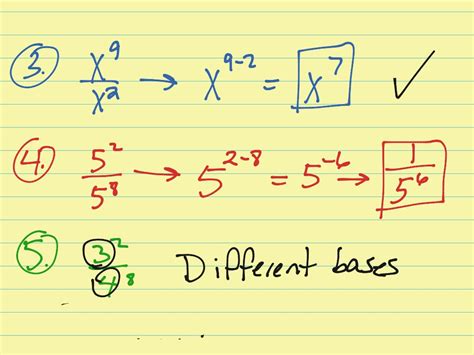 3. x⁹/x² → x⁹⁻² = x⁷ ✓
4. 5²/5⁸ → 5²⁻⁸ = 5⁻⁶ → 1/5⁶
5. 3²/4⁸ Different bases